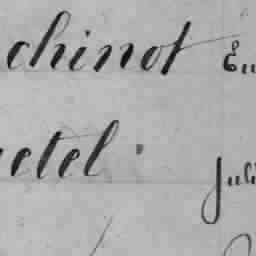 chinot Eu
etel Juli